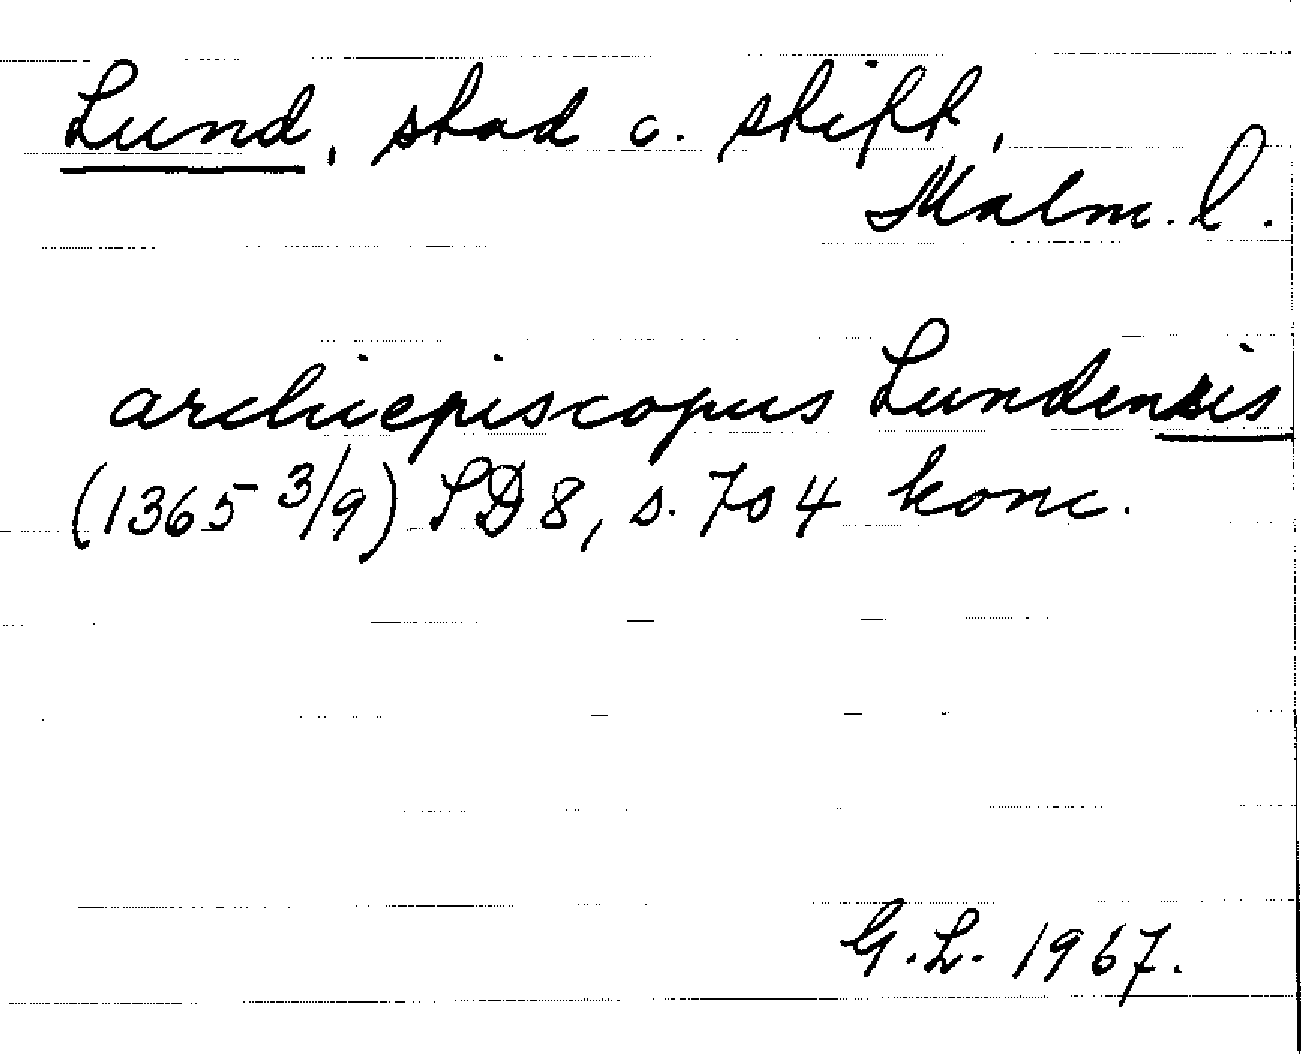 Lund, stad o. stift,
Malm. l.
archiepiscopus Lundensis
(1365 3/9) SD 8, s. 704 konc.
G.L. 1967.